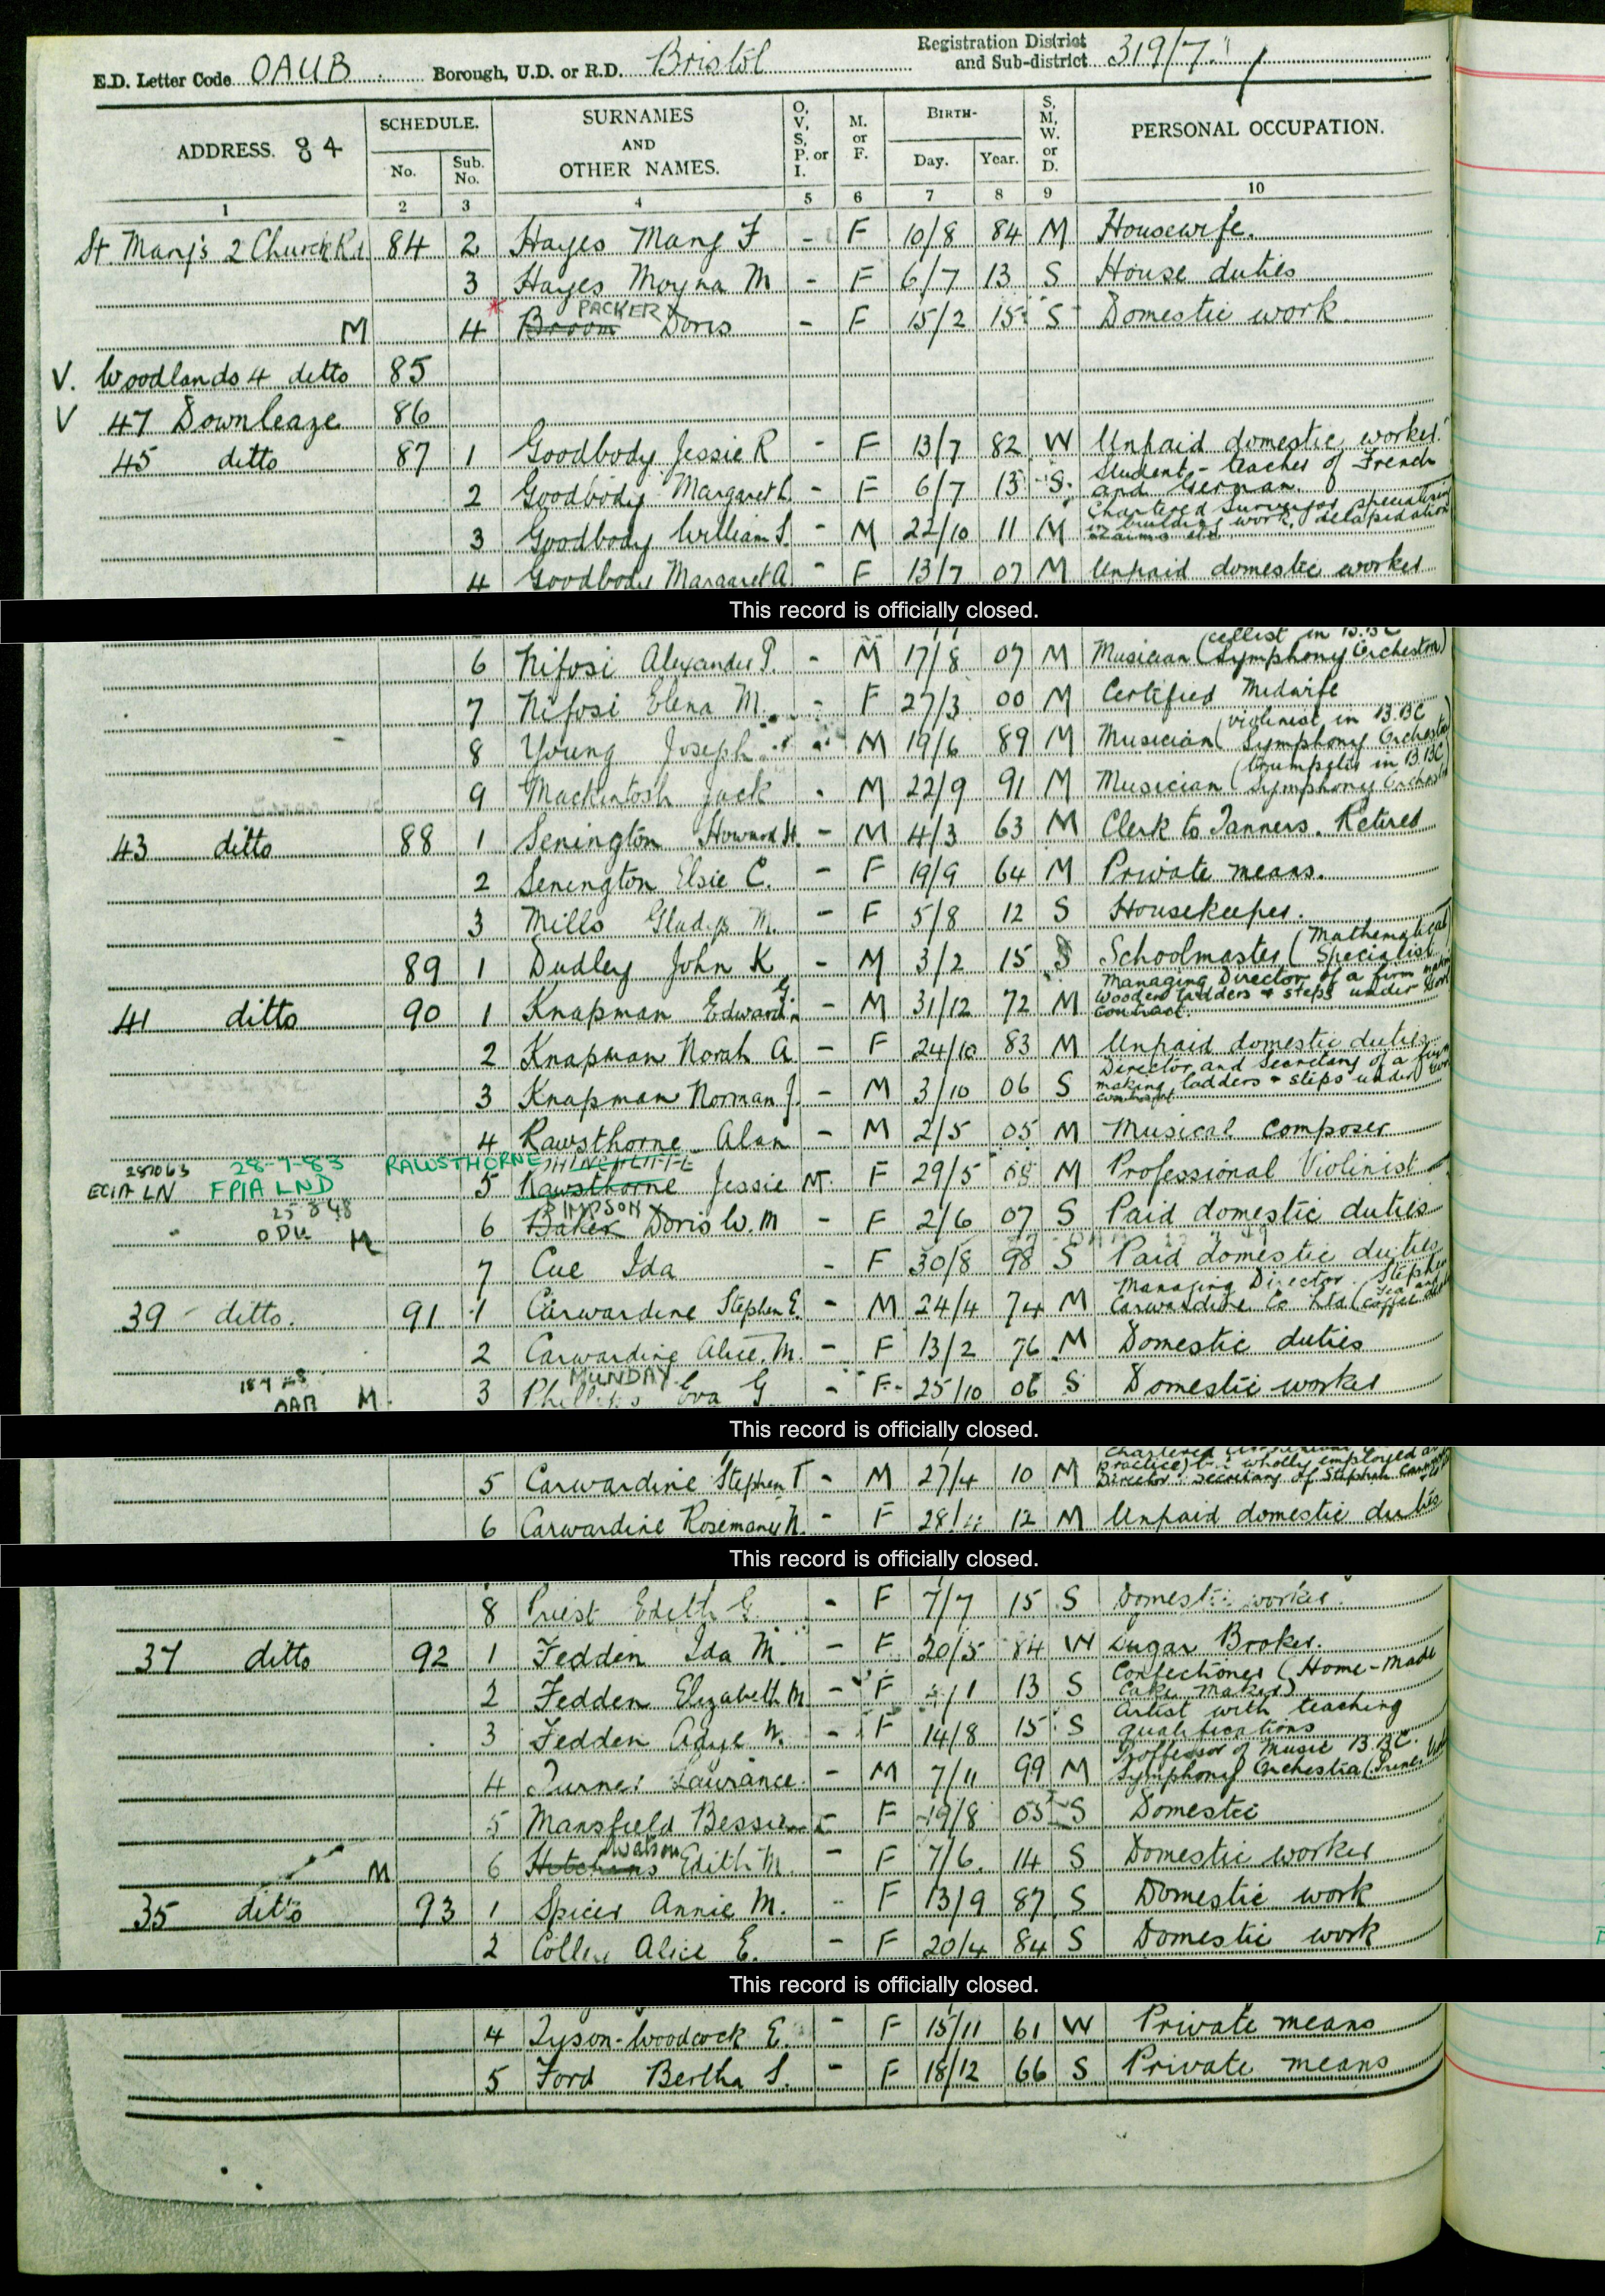 E.D. Letter Code OAUB. Borough, U.D. or R.D. Bristol Registration District and Sub-district 319/7
ADDRESS. 84 SCHEDULE. No. Sub. No. SURNAMES AND OTHER NAMES. O, V, S, P. or I. M. or F. BIRTH- Day. Year. S, M, W. or D. PERSONAL OCCUPATION.
1 2 3 4 5 6 7 8 9 10
St. Mary's 2 Church Rd 84 2 Hayes Mary F - F 10/8 84 M Housewife.
3 Hayes Moyna M - F 6/7 13 S House duties
PACKER
M 4 Broom Doris - F 15/2 15 S Domestic work.
V. Woodlands 4 ditto 85
V 47 Downleaze 86
45 ditto 87 1 Goodbody Jessie R - F 13/7 82 W Unpaid domestic worker
2 Goodbody Margaret - F 6/7 13 S. Student - teacher of French and German.
3 Goodbody William S. - M 22/10 11 M Chartered Surveyor specialising in building work, delapidation claims etc
4 Goodbody Margaret A - F 13/7 07 M Unpaid domestic worker
This record is officially closed.
6 Nifosi Alexander P. - M 17/8 07 M Musician (cellist in B.B.C Symphony Orchestra)
7 Nifosi Elena M. - F 27/3 00 M Certified Midwife
8 Young Joseph M 19/6 89 M Musician (violinist in B.B.C Symphony Orchestra)
9 Mackintosh Jack - M 22/9 91 M Musician (trumpeter in B.B.C Symphony Orchestra
43 ditto 88 1 Senington Howard H. - M 4/3 63 M Clerk to Tanners. Retired
2 Senington Elsie C. - F 19/9 64 M Private means.
3 Mills Gladys M. - F 5/8 12 S Housekeeper.
89 1 Dudley John K - M 3/2 15 S Schoolmaster (Mathematical Specialist
41 ditto 90 1 Knapman Edward - M 31/12 72 M Managing Director of a firm making wooden ladders + steps under Govt contract.
2 Knapman Norah A - F 24/10 83 M Unpaid domestic duties
3 Knapman Norman J. - M 3/10 06 S Director and Secretary of a firm making ladders + steps under Govt contract
4 Rawsthorne Alan - M 2/5 05 M Musical composer
287063 28-7-83 RAWSTHORNE HINCHLIFFE
ECIA LN FPIA LND 5 Rawsthorne Jessie M. F 29/5 08 M Professional Violinist
25 8 48 SIMPSON
ODU M 6 Baker Doris W. M - F 2/6 07 S Paid domestic duties
7 Cue Ida - F 30/8 98 S Paid domestic duties
39 ditto. 91 1 Carwardine Stephen E. - M 24/4 74 M Managing Director. Stephen Carwardine Co Ltd (Tea and coffee
2 Carwardine Alice. M. - F 13/2 76 M Domestic duties
MUNDAY
M. 3 Phillips Eva G - F 25/10 06 S Domestic worker
This record is officially closed.
5 Carwardine Stephen T - M 27/4 10 M practice) wholly employed as Director & Secretary of Stephen
6 Carwardine Rosemary N. - F 28/ 12 M Unpaid domestic duties
This record is officially closed.
8 Priest Edith G. - F 7/7 15 S Domestic worker.
37 ditto 92 1 Fedden Ida M. - F 20/5 84 W Sugar Broker.
2 Fedden Elizabeth M - F /1 13 S Confectioner (Home-made Cake maker)
3 Fedden Adye N. - F 14/8 15 S Artist with teaching qualifications
4 Turner Laurance - M 7/11 99 M Proffessor of Music B.B.C. Symphony Orchestra
5 Mansfield Bessie - F 19/8 05 S Domestic
Watson
M 6 Hutchins Edith M. - F 7/6. 14 S Domestic worker
35 ditto 93 1 Spicer Annie M. - F 13/9 87 S Domestic work
2 Colley Alice E. - F 20/4 84 S Domestic work
This record is officially closed.
4 Tyson-Woodcock E. - F 15/11 61 W Private means
5 Ford Bertha S. - F 18/12 66 S Private means